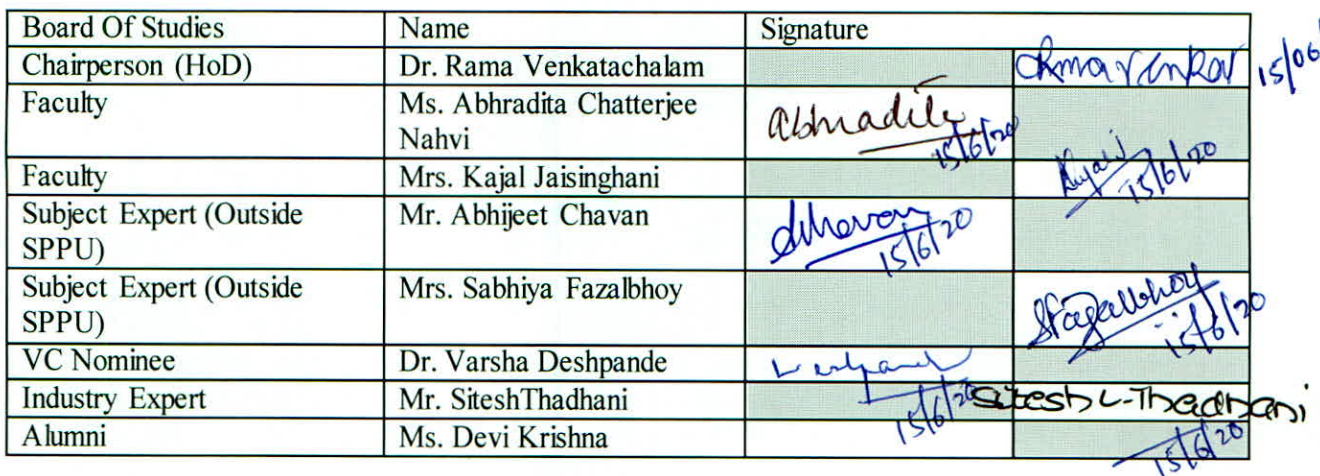 Board Of Studies Name Signature
Chairperson (HoD) Dr. Rama Venkatachalam 15/06
Faculty Ms. Abhradita Chatterjee
Nahvi
Abhradita
15/6/20
Faculty Mrs. Kajal Jaisinghani
Kajal J
15/6/20
Subject Expert (Outside Mr. Abhijeet Chavan
SPPU)
15/6/20
Subject Expert (Outside Mrs. Sabhiya Fazalbhoy
SPPU)
SFazalbhoy
15/6/20
VC Nominee Dr. Varsha Deshpande
15/6/20
Industry Expert Mr. SiteshThadhani Sitesh L-Thadhani
15/6/20
Alumni Ms. Devi Krishna